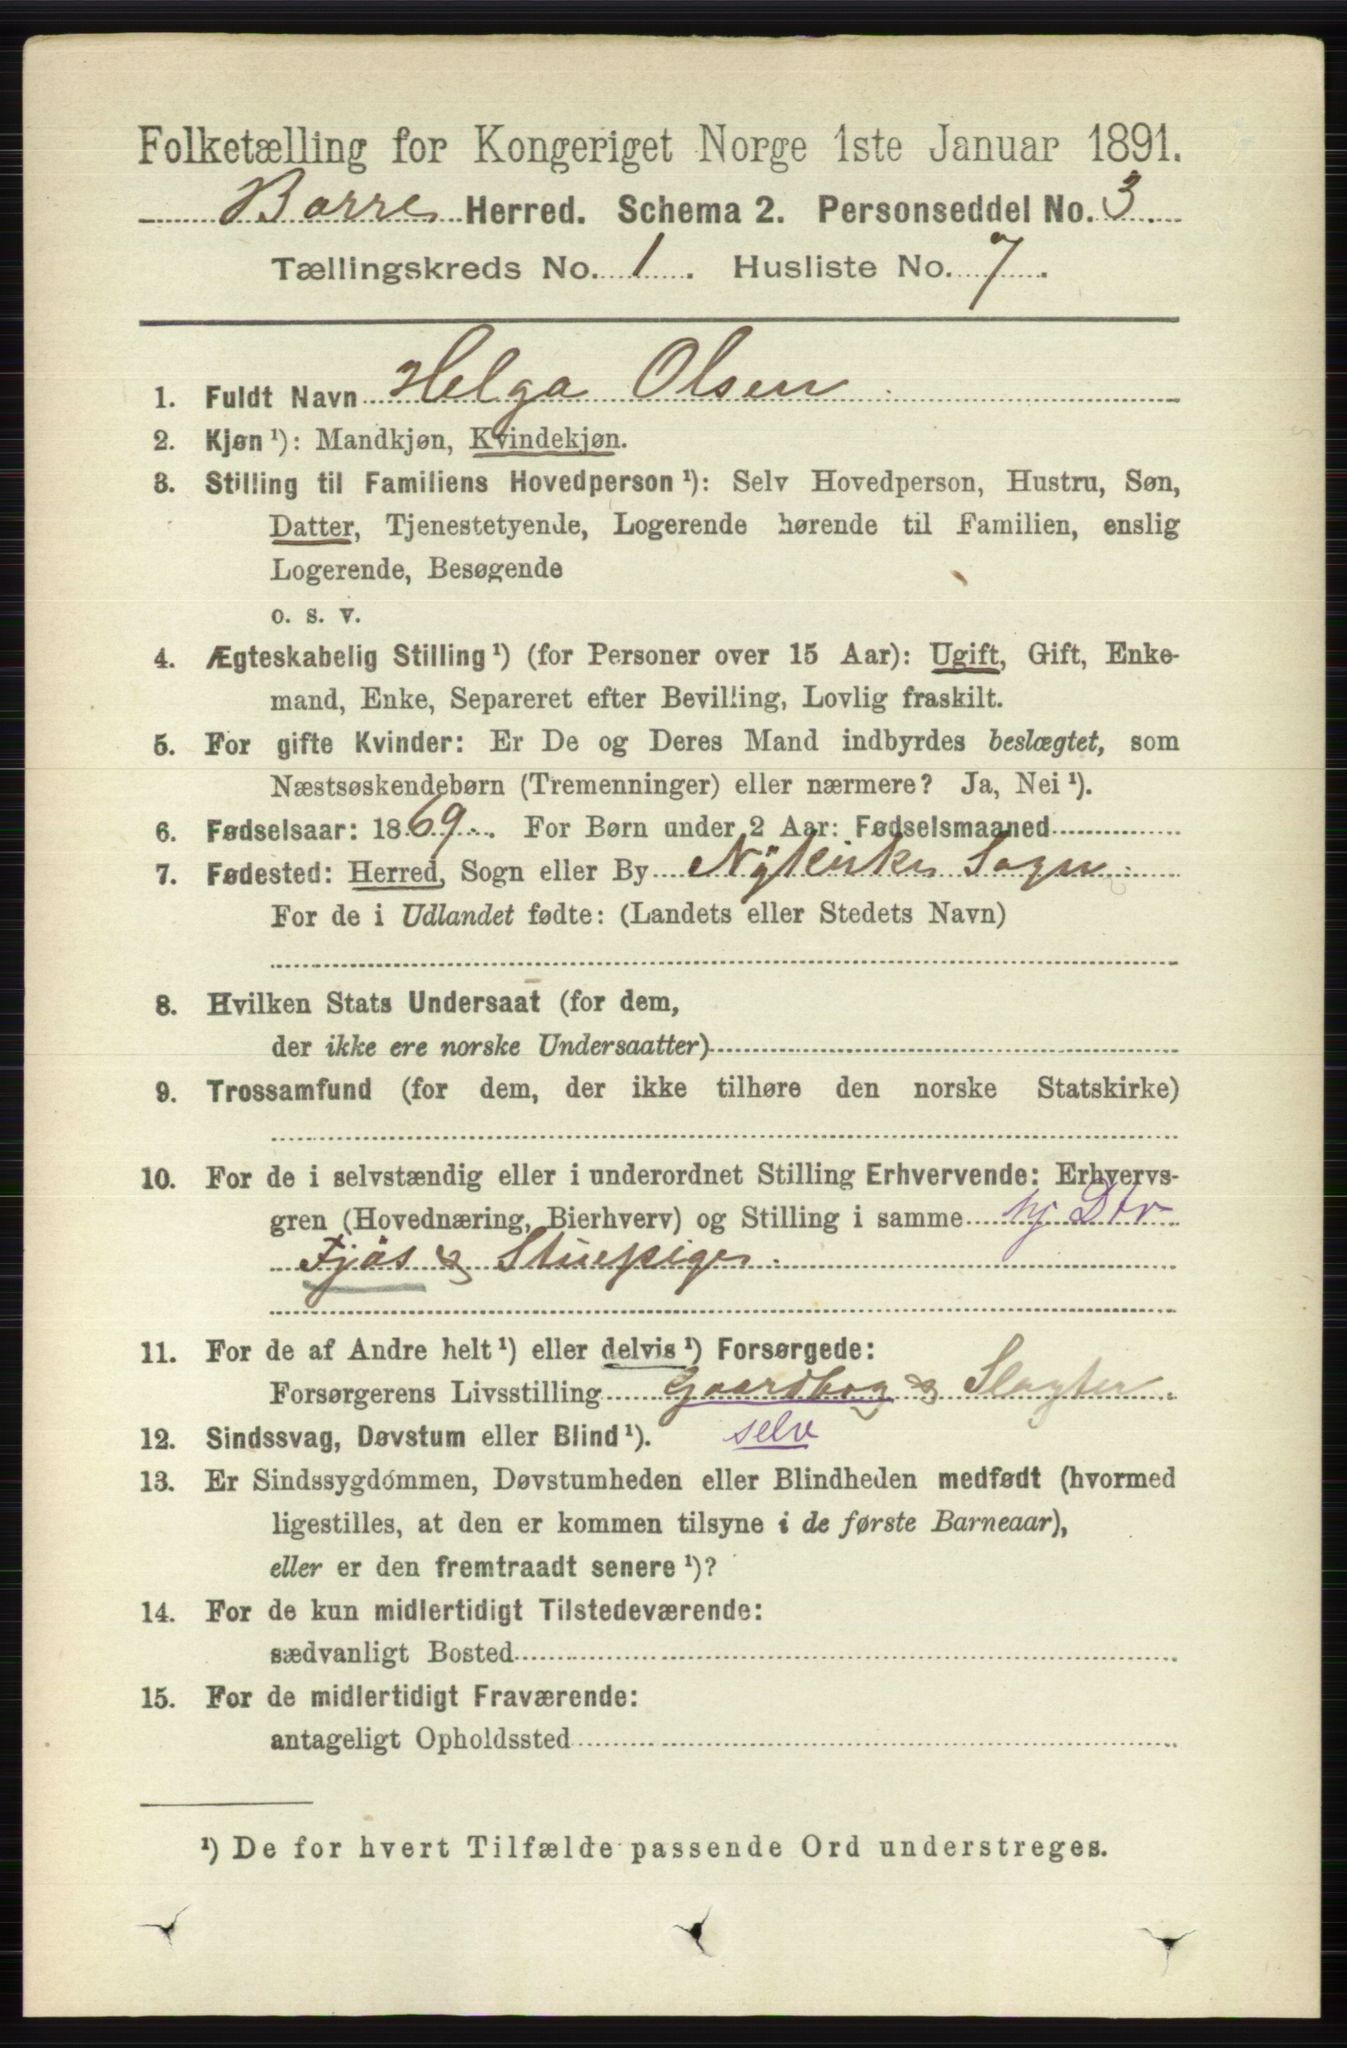 Folketælling for Kongeriget Norge 1ste Januar 1891.
Borre Herred. Schema 2. Personseddel No. 3.
Tællingskreds No. 1. Husliste No. 7.
1. Fuldt Navn Helga Olsen
2. Kjøn ¹): Mandkjøn, Kvindekjøn.
3. Stilling til Familiens Hovedperson ¹): Selv Hovedperson, Hustru, Søn,
Datter, Tjenestetyende, Logerende hørende til Familien, enslig
Logerende, Besøgende
o. s. v.
4. Ægteskabelig Stilling ¹) (for Personer over 15 Aar): Ugift, Gift, Enke-
mand, Enke, Separeret efter Bevilling, Lovlig fraskilt.
5. For gifte Kvinder: Er De og Deres Mand indbyrdes beslægtet, som
Næstsøskendebørn (Tremenninger) eller nærmere? Ja, Nei ¹).
6. Fødselsaar: 1869. For Børn under 2 Aar: Fødselsmaaned
7. Fødested: Herred, Sogn eller By Nÿkirke Sogn.
For de i Udlandet fødte: (Landets eller Stedets Navn)
8. Hvilken Stats Undersaat (for dem,
der ikke ere norske Undersaatter)
9. Trossamfund (for dem, der ikke tilhøre den norske Statskirke)
10. For de i selvstændig eller i underordnet Stilling Erhvervende: Erhvervs-
gren (Hovednæring, Bierhverv) og Stilling i samme hj Dtr
Fjøs & Stuepige.
11. For de af Andre helt ¹) eller delvis ¹) Forsørgede:
Forsørgerens Livsstilling Gaardbrg & Slagter.
12. Sindssvag, Døvstum eller Blind ¹). selv
13. Er Sindssygdommen, Døvstumheden eller Blindheden medfødt (hvormed
ligestilles, at den er kommen tilsyne i de første Barneaar),
eller er den fremtraadt senere ¹)?
14. For de kun midlertidigt Tilstedeværende:
sædvanligt Bosted
15. For de midlertidigt Fraværende:
antageligt Opholdssted
¹) De for hvert Tilfælde passende Ord understreges.